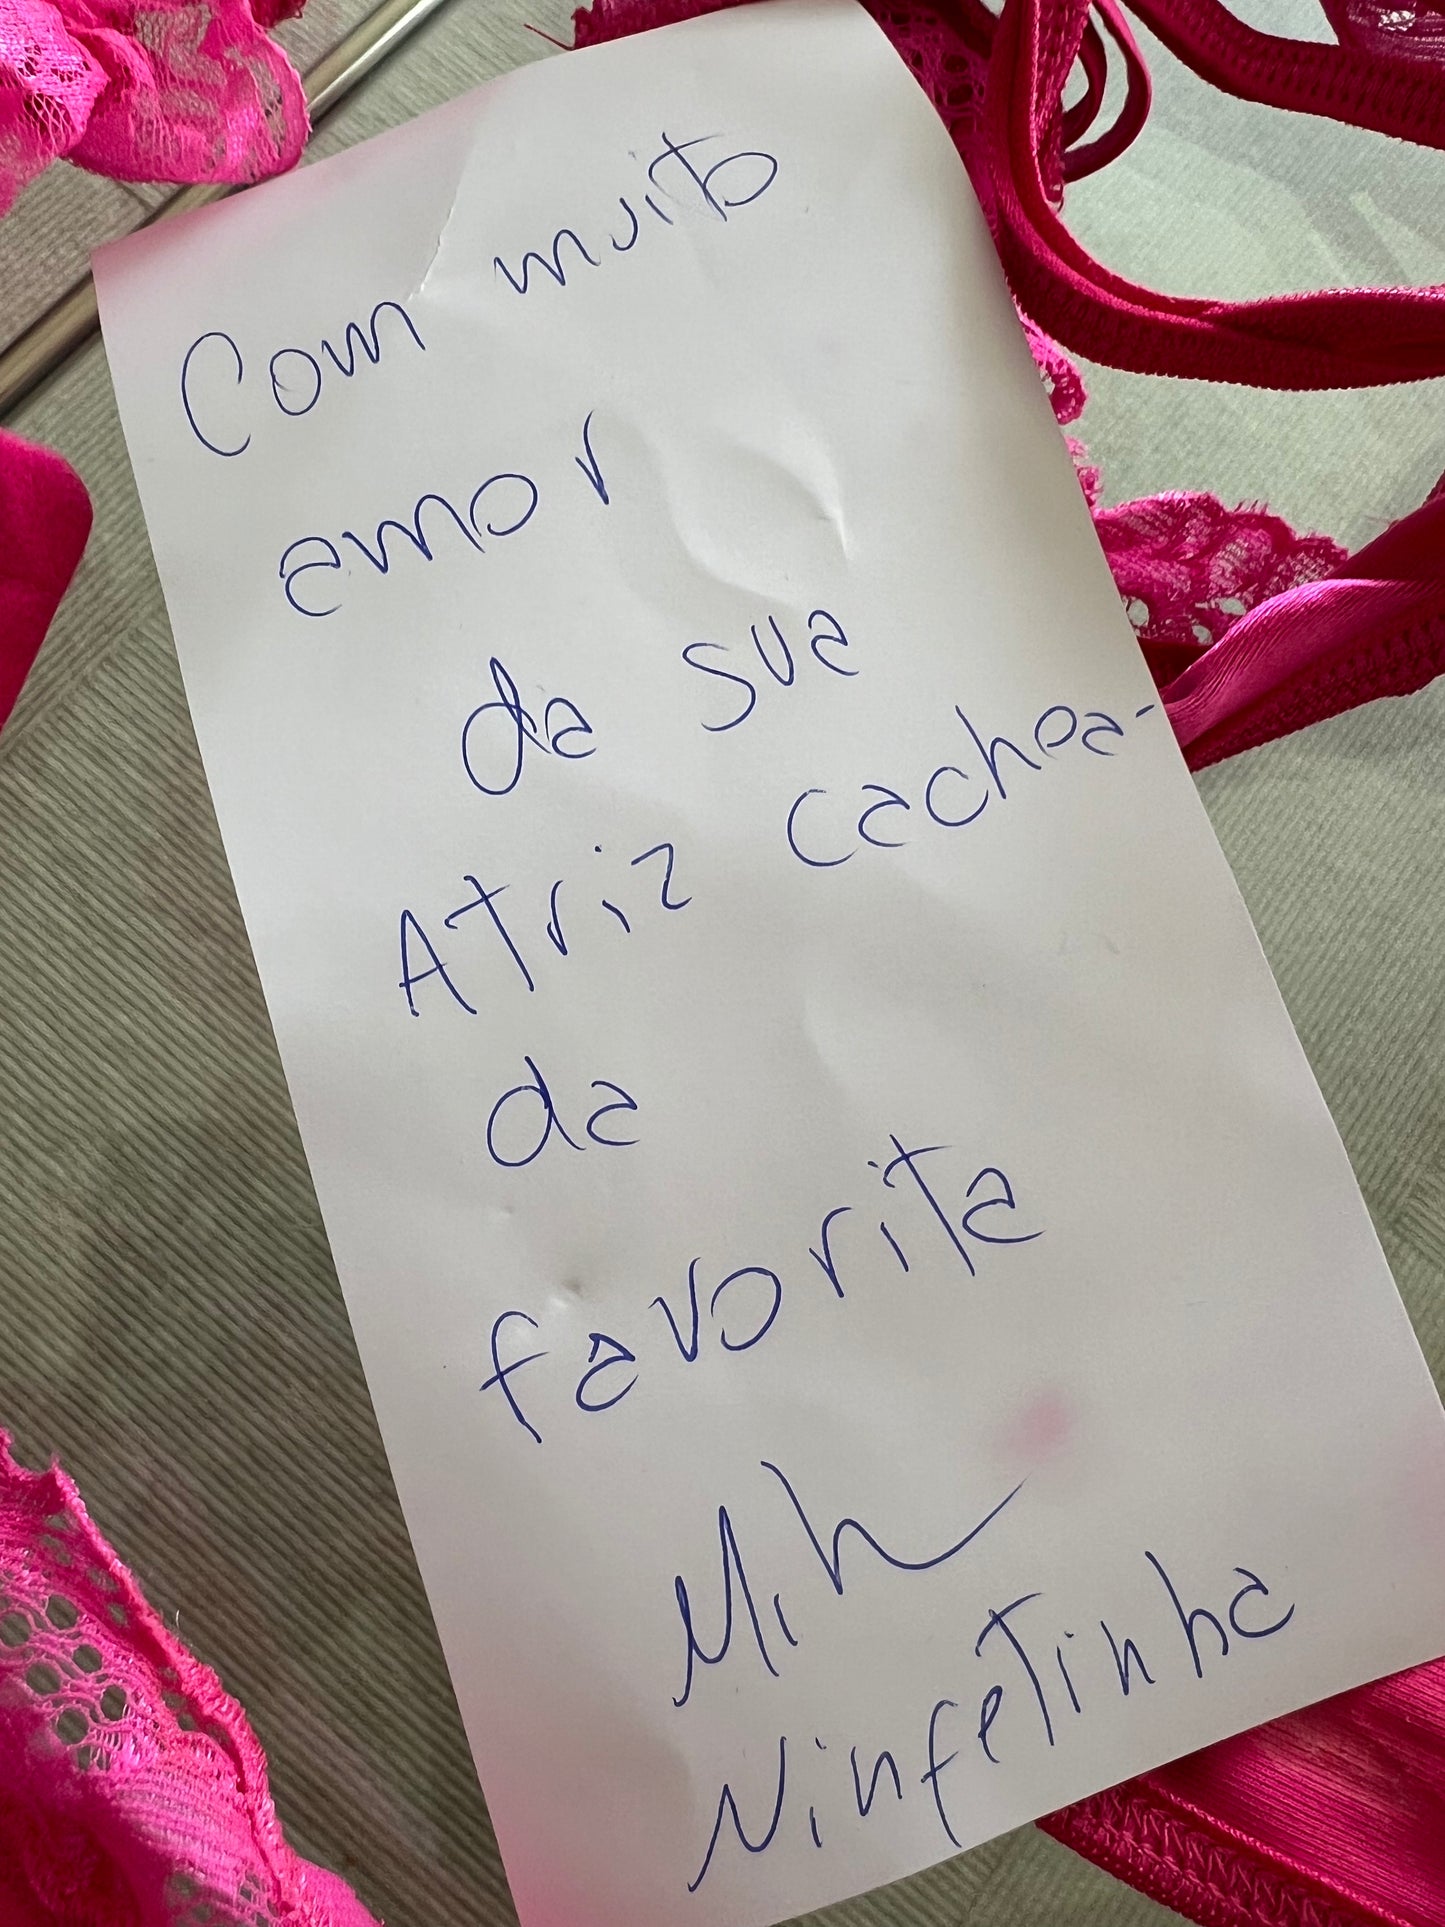 Com muito
amor
da sua
Atriz cachea-
da
favorita
Mih
Ninfetinha